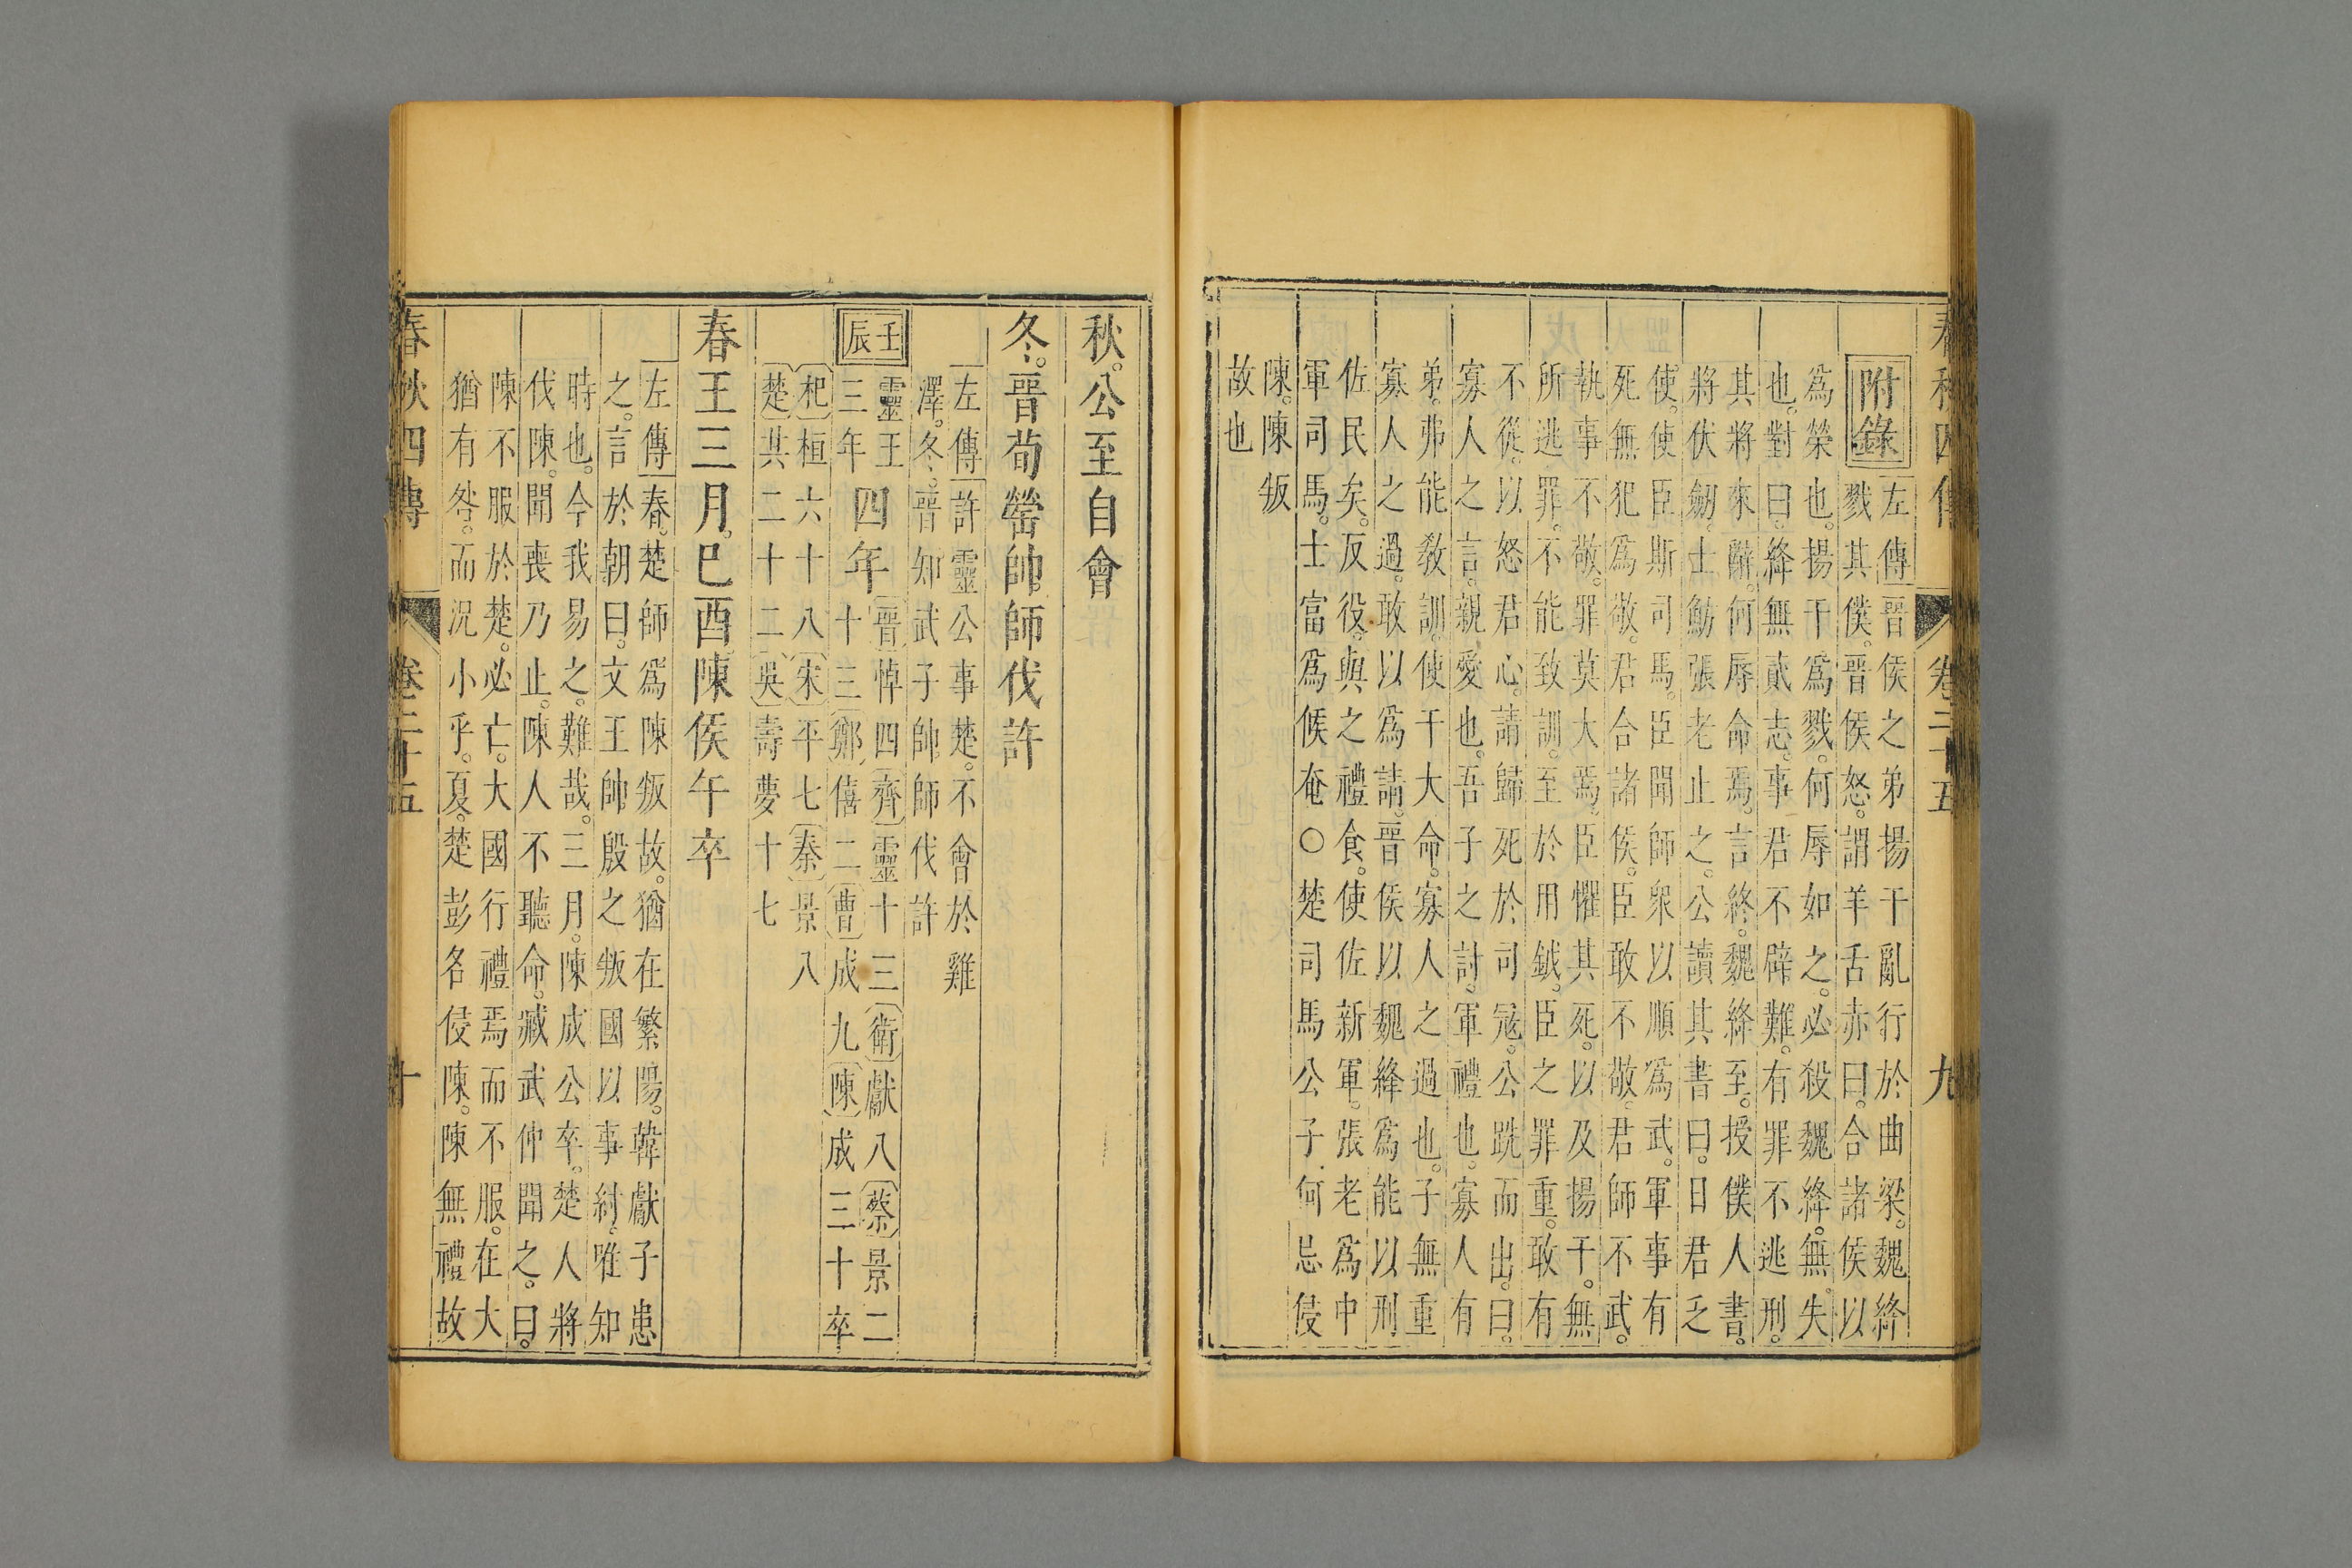 春秋四傳 卷二十五 九
附錄
左傳晉侯之弟揚干亂行於曲梁。魏絳
戮其僕。晉侯怒。謂羊舌赤曰。合諸侯以
爲榮也。揚干爲戮。何辱如之。必殺魏絳。無失
也。對曰。絳無貳志。事君不辟難。有罪不逃刑。
其將來辭。何辱命焉。言終。魏絳至。授僕人書。
將伏劒。士魴張老止之。公讀其書曰。日君乏
使。使臣斯司馬。臣聞師衆以順爲武。軍事有
死無犯爲敬。君合諸侯。臣敢不敬。君師不武。
執事不敬。罪莫大焉。臣懼其死。以及揚干。無
所逃罪。不能致訓。至於用鉞。臣之罪重。敢有
不從。以怒君心。請歸死於司寇。公跣而出。曰。
寡人之言。親愛也。吾子之討。軍禮也。寡人有
弟。弗能敎訓。使干大命。寡人之過也。子無重
寡人之過。敢以爲請。晉侯以魏絳爲能以刑
佐民矣。反役。與之禮食。使佐新軍。張老爲中
軍司馬。士富爲候奄○楚司馬公子何忌侵
陳。陳叛
故也
秋。公至自會
冬。晉荀罃帥師伐許
左傳許靈公事楚。不會於雞
澤。冬。晉知武子帥師伐許
壬辰
靈王
三年
四年
晉悼四齊靈十三衛獻八蔡景二
十三鄭僖二曹成九陳成三十卒
杞桓六十八宋平七秦景八
楚共二十二吳壽夢十七
春王三月。巳酉陳侯午卒
左傳春。楚師爲陳叛故。猶在繁陽。韓獻子患
之。言於朝曰。文王帥殷之叛國以事紂。唯知
時也。今我易之。難哉。三月。陳成公卒。楚人將
伐陳。聞喪乃止。陳人不聽命。臧武仲聞之。曰。
陳不服於楚。必亡。大國行禮焉而不服。在大
猶有咎。而況小乎。夏。楚彭名侵陳。陳無禮故
春秋四傳 卷二十五 十